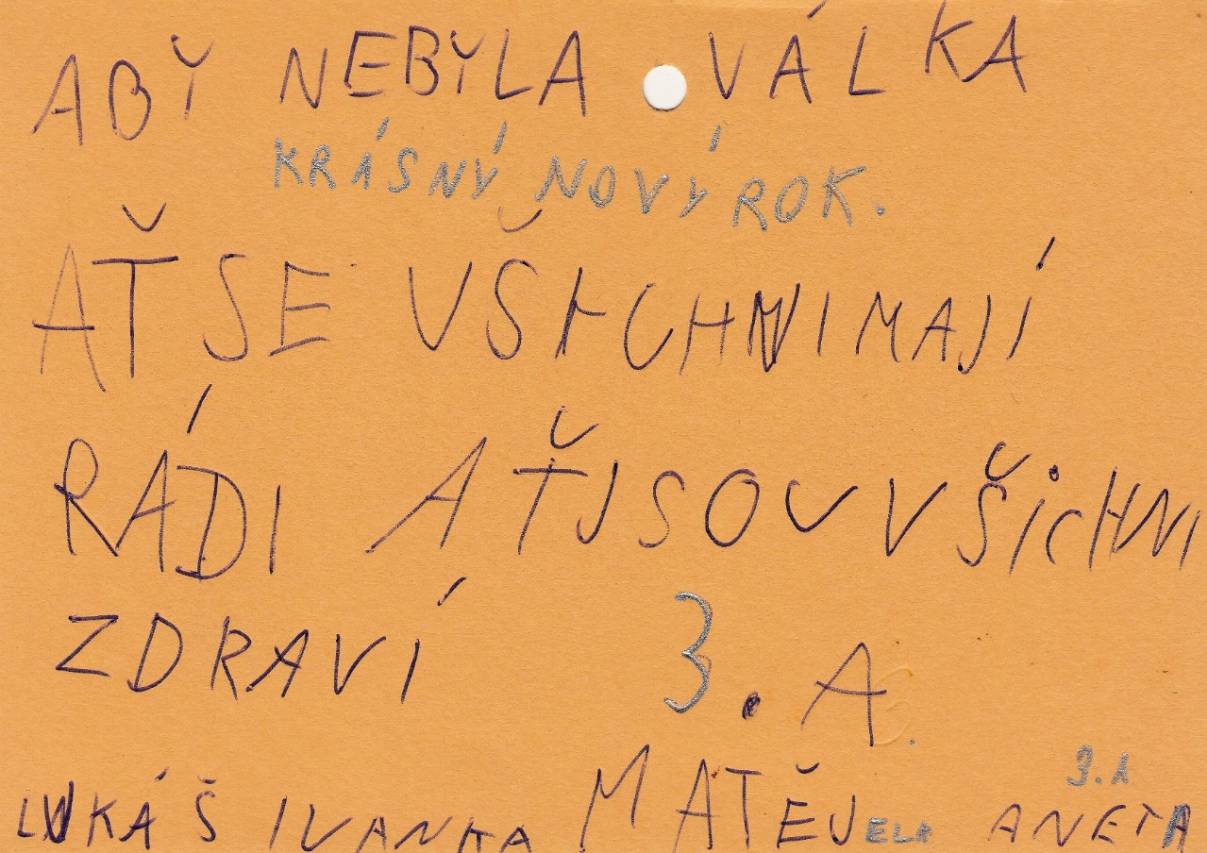 ABY̌ NEBY̌LA VÁLKA
KRÁSNÝ NOVÝ ROK.
AŤ SE VŠICHNI MAJÍ
RÁDI AŤ JSOU VŠICHNI
ZDRAVÍ 3. A.
3.A
LUKÁŠ IVANKA MATĚJ ELA ANETA